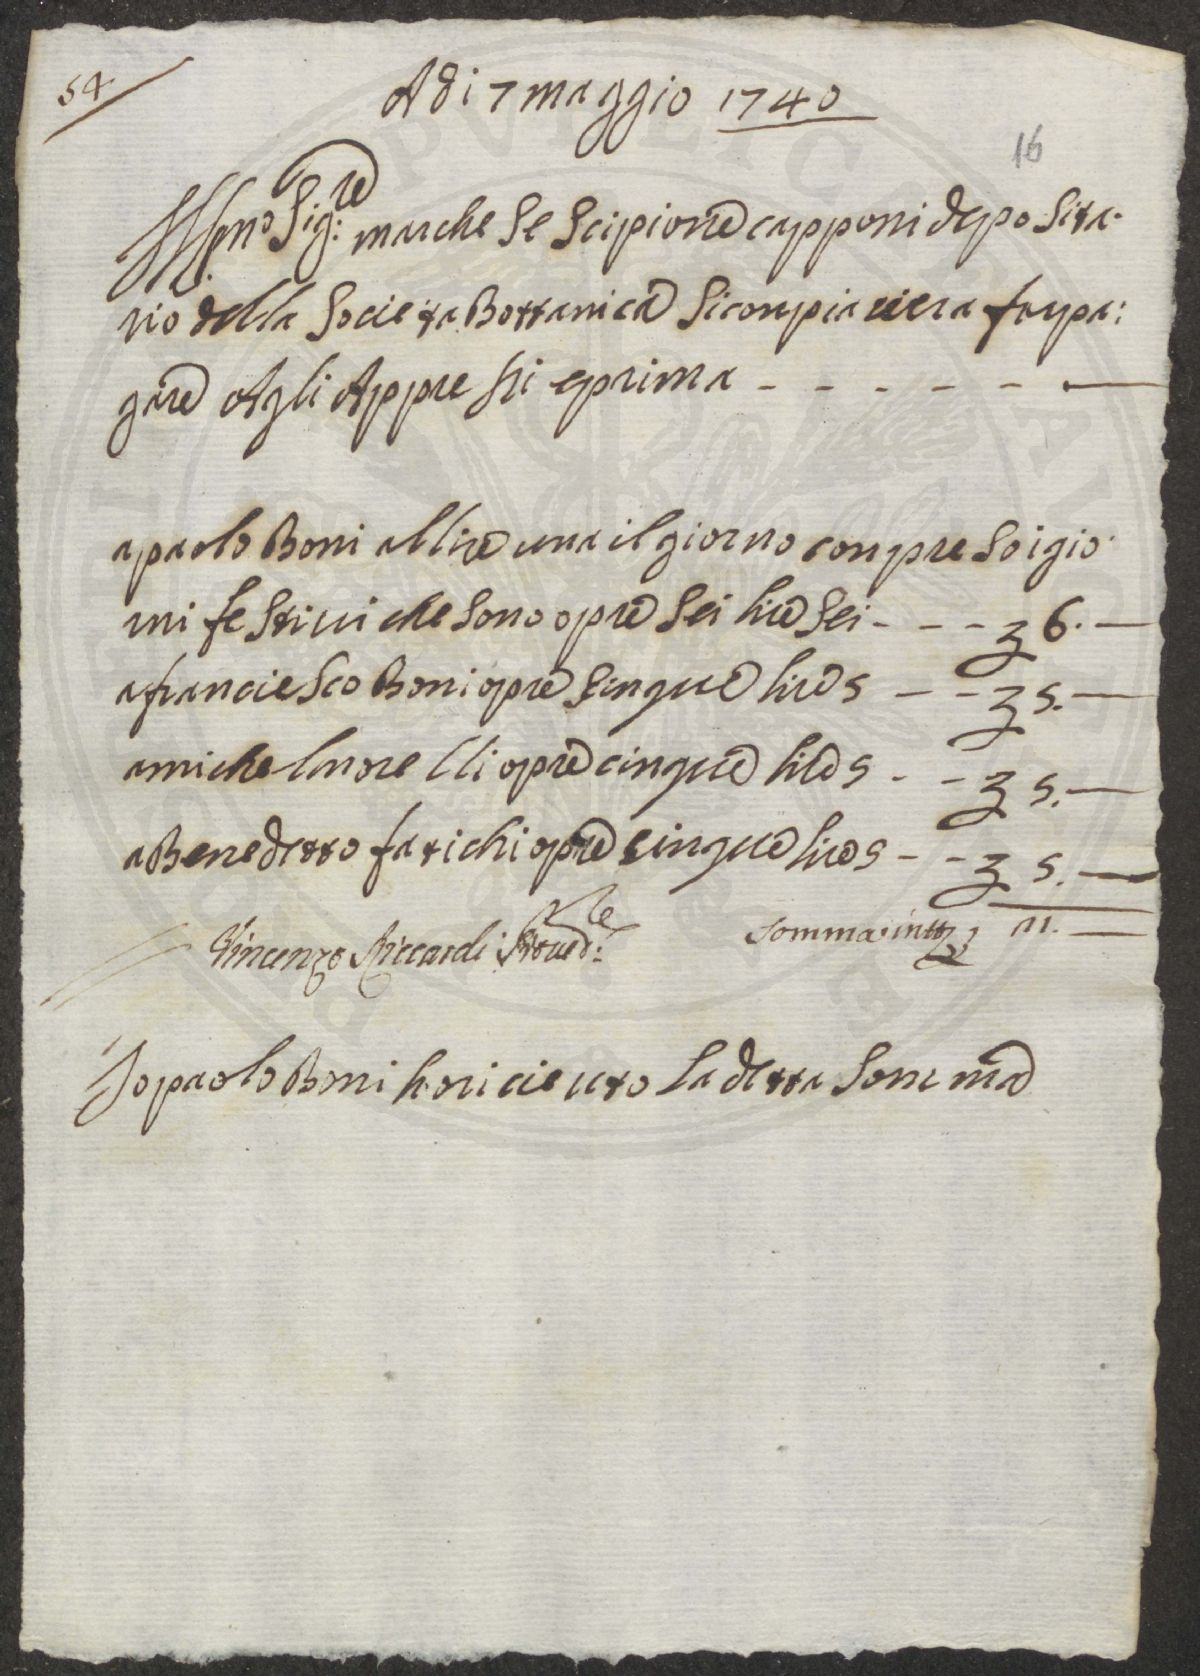 54
Adi 7 maggio 1740
16
Illmo Sig:re marchese Scipione capponi deposita
rio della Societa Bottanica Si conpiaciera far pa:
gare Agli Appresti e prima
a paolo Boni allire una il giorno conpreso i gio
rni festivi che sono opre sei lire sei - - - 6. —
a franciesco Boni opre cinque lire 5 - - 5. —
a michel morelli opre cinque lire 5 - - 5. —
a Benedetto fatichi opre cinque lire 5 - - 5. —
Vincenzo Riccardi Proved:re
Somma in tt 21. —
Io paolo Boni ho ricieuto La detta Somma